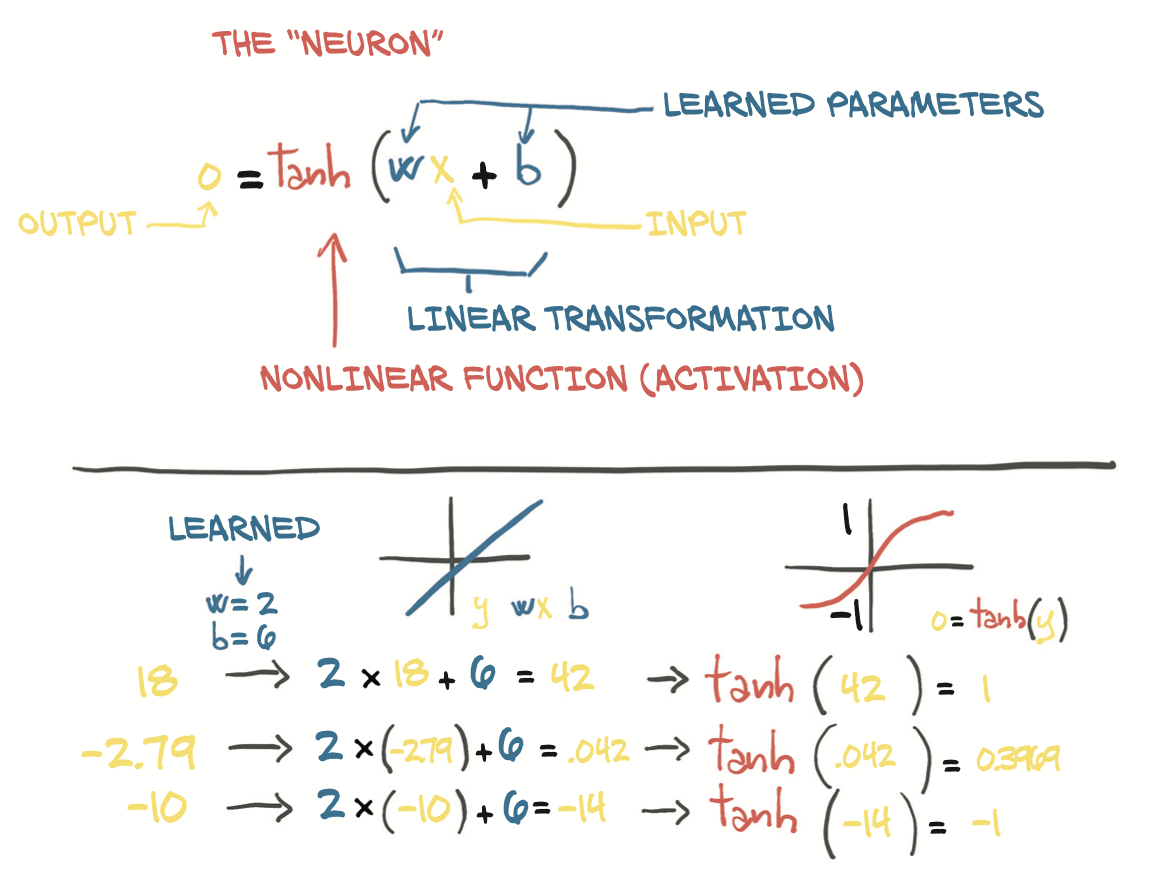 THE "NEURON"
LEARNED PARAMETERS
o = tanh (wx + b)
OUTPUT
INPUT
LINEAR TRANSFORMATION
NONLINEAR FUNCTION (ACTIVATION)
LEARNED
w = 2
b = 6
y wx b
1
-1
o = tanh(y)
18 → 2 × 18 + 6 = 42 → tanh (42) = 1
-2.79 → 2 × (-279) + 6 = .042 → tanh (.042) = 0.3969
-10 → 2 × (-10) + 6 = -14 → tanh (-14) = -1